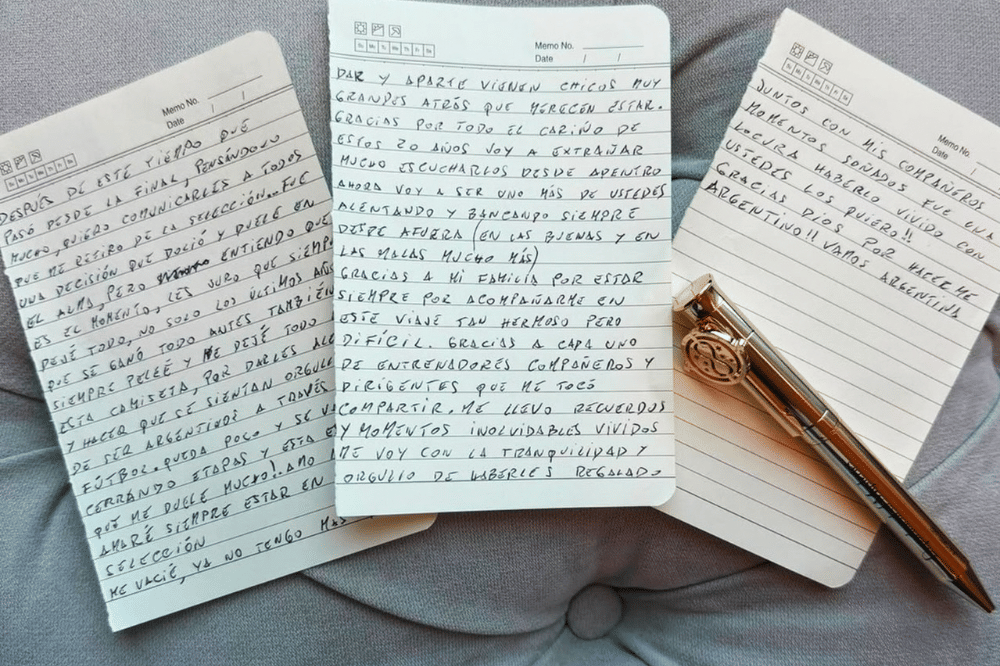 Memo No.
Date / /
DESPUÉS DE ESTE TIEMPO QUE
PASÓ DESDE LA FINAL, PENSÁNDOLO
MUCHO, QUIERO COMUNICARLES A TODOS
QUE ME RETIRO DE LA SELECCIÓN... FUE
UNA DECISIÓN QUE DOLIÓ Y DUELE EN
EL ALMA, PERO ENTIENDO QUE
ES EL MOMENTO, LES JURO QUE SIEMP
DEJÉ TODO, NO SOLO LOS ÚLTIMOS AÑOS
QUE SE GANÓ TODO ANTES TAMBIÉN
SIEMPRE PELEÉ Y ME DEJÉ TODO
ESTA CAMISETA, POR DARLES ALE
Y HACER QUE SE SIENTAN ORGULLO
DE SER ARGENTINOS A TRAVÉS
FÚTBOL. QUEDA POCO Y SE VA
CERRANDO ETAPAS Y ESTA ES
QUE ME DUELE MUCHO! AMO
AMARÉ SIEMPRE ESTAR EN
SELECCIÓN
ME VACIÉ, YA NO TENGO MAS
Su Mo Tu We Th Fr Sa
Memo No.
Date / /
DAR Y APARTE VIENEN CHICOS MUY
GRANDES ATRÁS QUE MERECEN ESTAR.
GRACIAS POR TODO EL CARIÑO DE
ESTOS 20 AÑOS VOY A EXTRAÑAR
MUCHO ESCUCHARLOS DESDE ADENTRO
AHORA VOY A SER UNO MÁS DE USTEDES
ALENTANDO Y BANCANDO SIEMPRE
DESDE AFUERA (EN LAS BUENAS Y EN
LAS MALAS MUCHO MÁS)
GRACIAS A MI FAMILIA POR ESTAR
SIEMPRE POR ACOMPAÑARME EN
ESTE VIAJE TAN HERMOSO PERO
DIFÍCIL. GRACIAS A CADA UNO
DE ENTRENADORES COMPAÑEROS Y
DIRIGENTES QUE ME TOCÓ
COMPARTIR. ME LLEVO RECUERDOS
Y MOMENTOS INOLVIDABLES VIVIDOS
ME VOY CON LA TRANQUILIDAD Y
ORGULLO DE HABERLES REGALADO
Memo No.
Date /
JUNTOS CON MIS COMPAÑEROS
MOMENTOS SOÑADOS FUE UNA
LOCURA HABERLO VIVIDO CON
USTEDES LOS QUIERO!!
GRACIAS DIOS POR HACERME
ARGENTINO!! VAMOS ARGENTINA